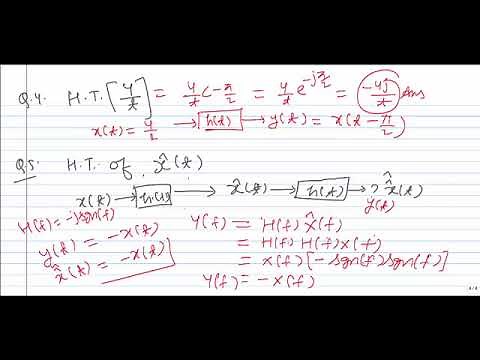 Q.4. H.T. [4/t] = 4/t ∠-π/2 = 4/t e^(-jπ/2) = -4j/t Ans
x(t) = 4/t → h(t) → y(t) = x(t - π/2)
Q.5. H.T. of x̂(t)
x(t) → h(t) → x̂(t) → h(t) → x̂̂(t)
y(t)
H(f) = -jsgn(f)
Y(f) = H(f) X̂(f)
y(t) = -x(t)
= H(f) H(f) X(f)
x̂̂(t) = -x(t)
= X(f) [-sgn(f) sgn(f)]
Y(f) = -X(f)